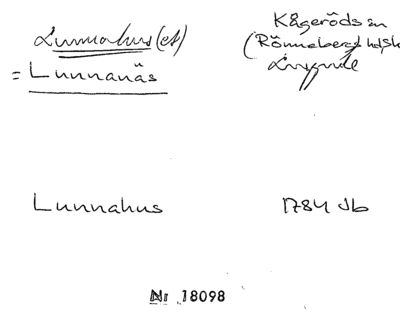 Lunnahus (et)
= Lunnanäs
Kågeröds sn
(Rönnebergs hd, Sk
Luggude
Lunnahus
1784 Jb
Nr 18098